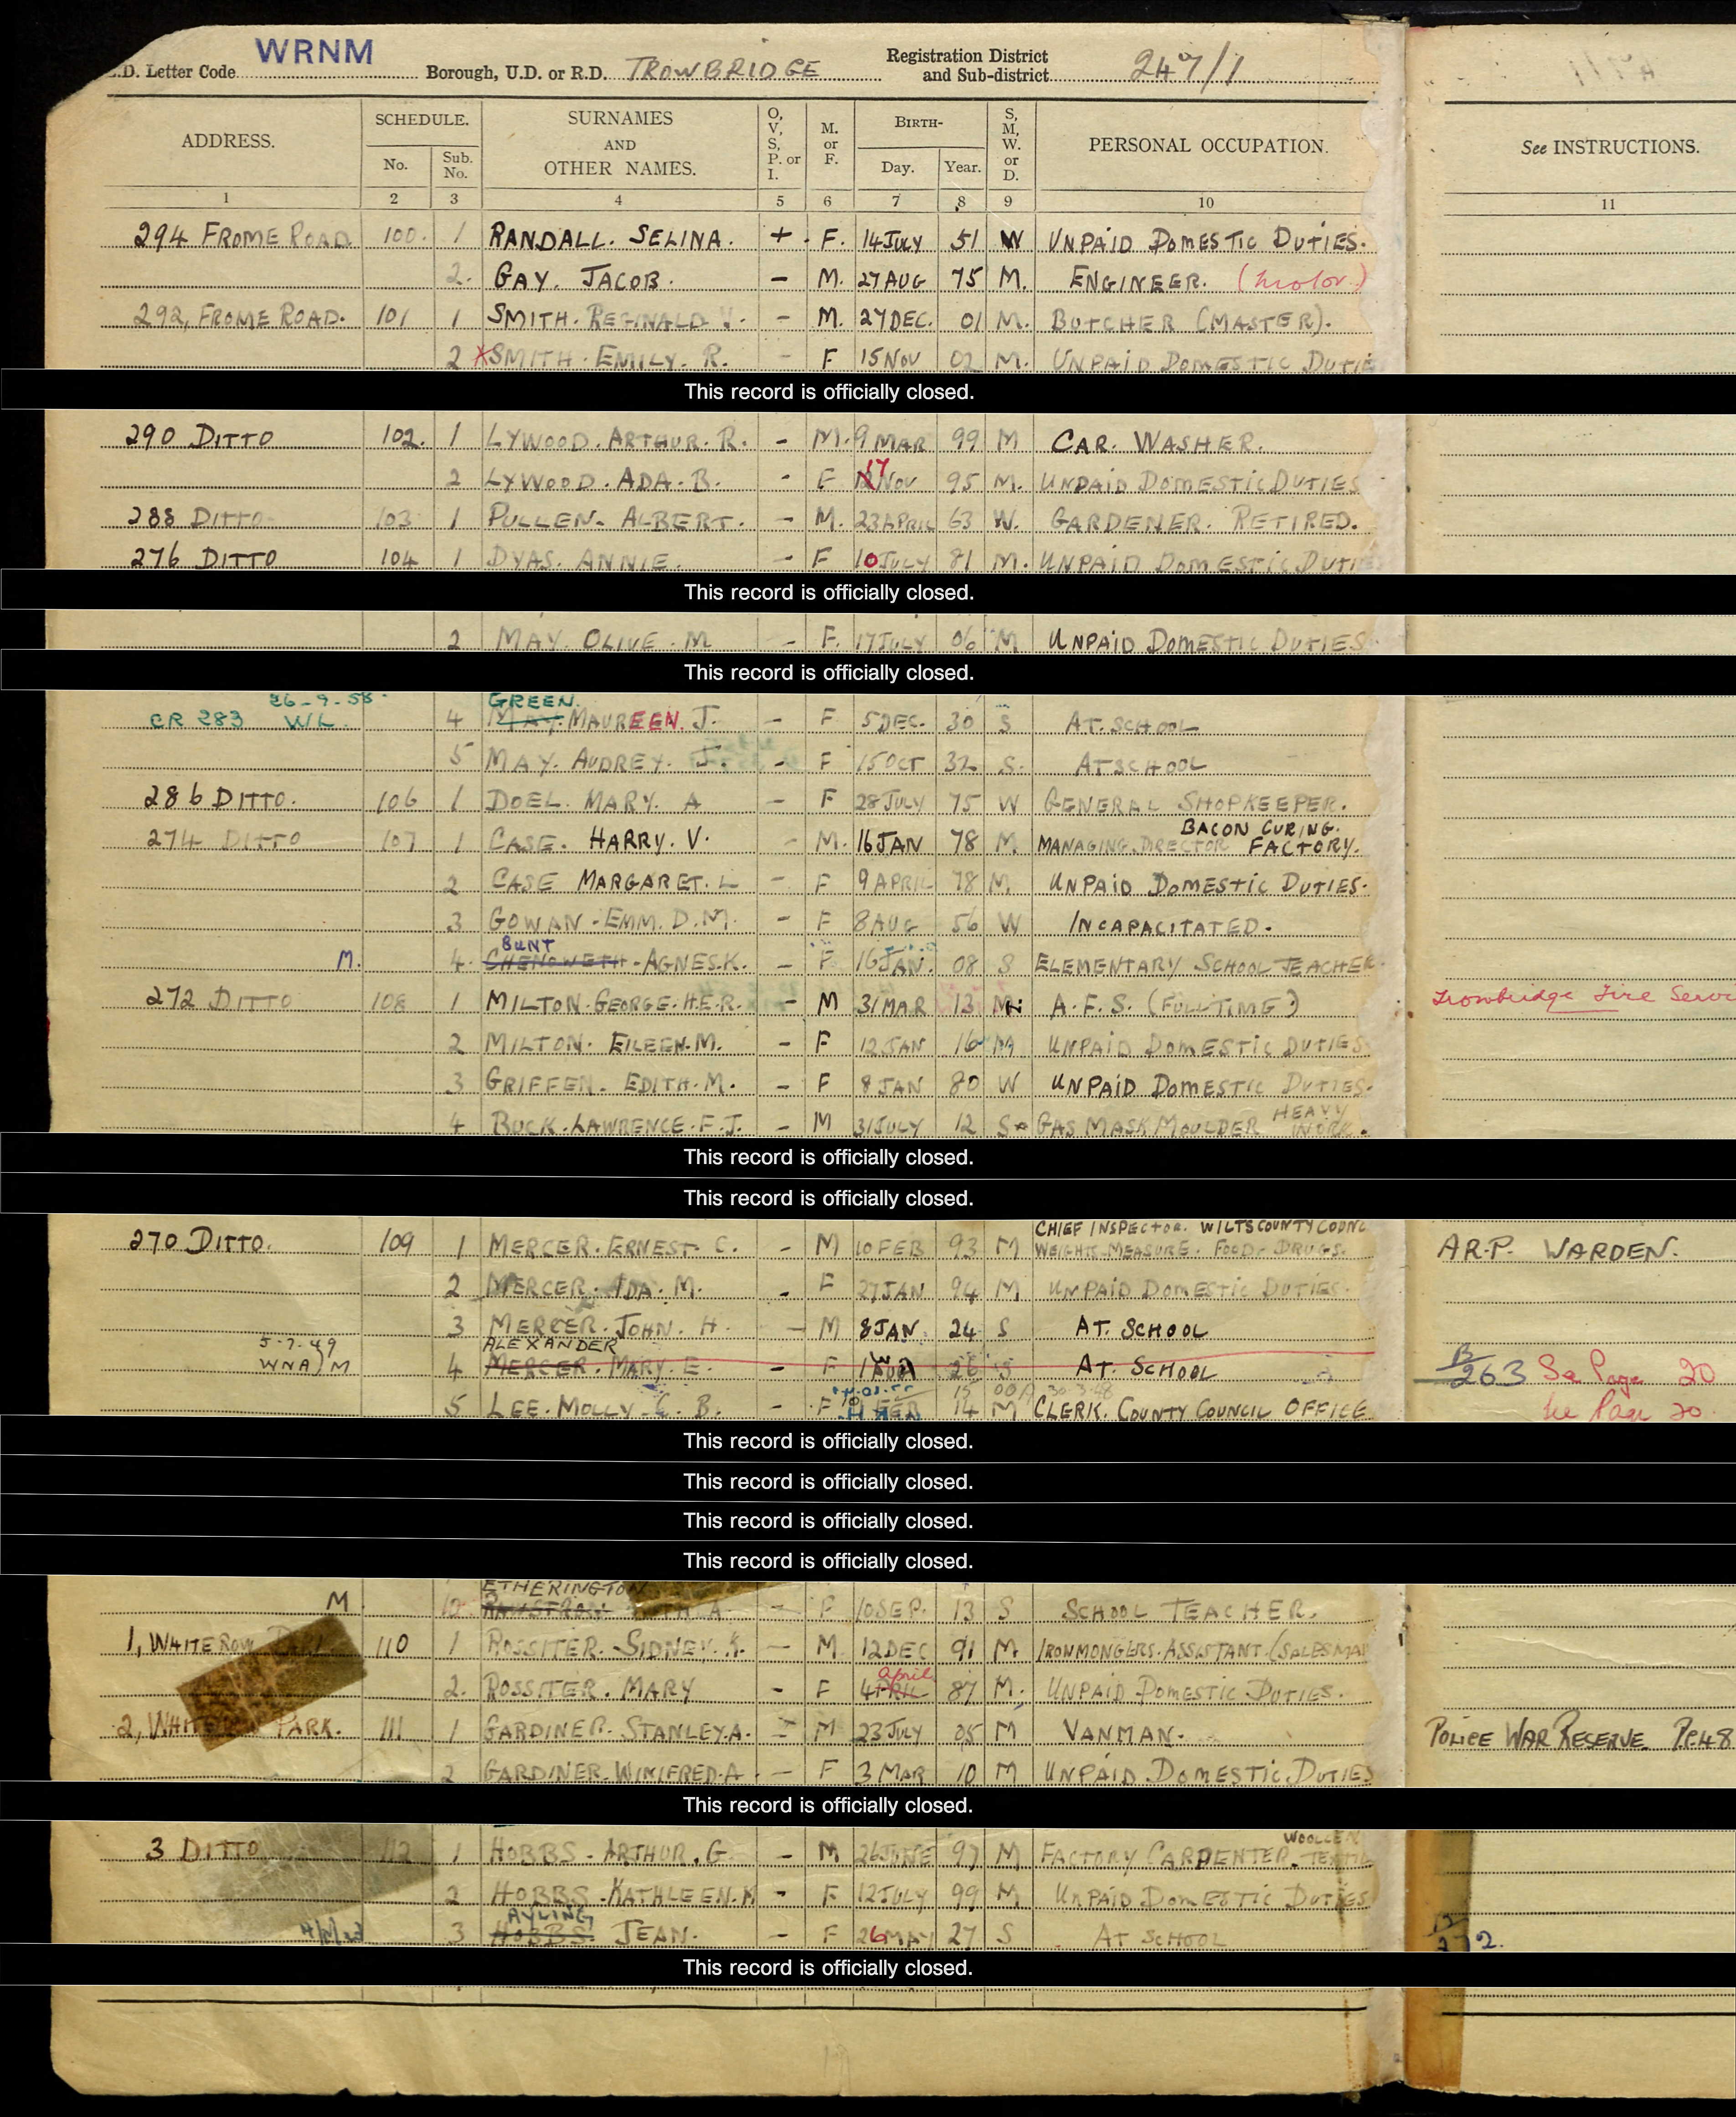 WRNM
E.D. Letter Code Borough, U.D. or R.D. TROWBRIDGE Registration District and Sub-district 247/1
ADDRESS. SCHEDULE. No. Sub. No. SURNAMES AND OTHER NAMES. O, V, S, P. or I. M. or F. BIRTH- Day. Year. S, M, W. or D. PERSONAL OCCUPATION. See INSTRUCTIONS.
1 2 3 4 5 6 7 8 9 10 11
294 FROME ROAD 100. 1 RANDALL. SELINA. + F. 14 JULY 51 W UNPAID DOMESTIC DUTIES.
2. GAY. JACOB. - M. 27 AUG 75 M. ENGINEER. (Motor)
292, FROME ROAD. 101 1 SMITH. REGINALD V. - M. 27 DEC. 01 M. BUTCHER (MASTER).
2 X SMITH. EMILY. R. - F 15 NOV 02 M. UNPAID DOMESTIC DUTIE
This record is officially closed.
290 DITTO 102. 1 LYWOOD. ARTHUR. R. - M. 9 MAR 99 M CAR. WASHER.
2 LYWOOD. ADA. B. - F 17 NOV 95 M. UNPAID DOMESTIC DUTIES
288 DITTO 103 1 PULLEN. ALBERT. - M. 23 APRIL 63 W. GARDENER. RETIRED.
276 DITTO 104 1 DYAS. ANNIE. - F 10 JULY 81 M. UNPAID DOMESTIC DUTIE
This record is officially closed.
2 MAY. OLIVE. M - F. 17 JULY 06 M UNPAID DOMESTIC DUTIES
This record is officially closed.
26-9-58 GREEN.
CR 283 WL 4 MAY. MAUREEN. J. - F 5 DEC. 30 S AT. SCHOOL
5 MAY. AUDREY. J. - F 15 OCT 32 S. AT SCHOOL
286 DITTO. 106 1 DOEL. MARY. A - F 28 JULY 75 W GENERAL SHOPKEEPER.
BACON CURING.
274 DITTO 107 1 CASE. HARRY. V. - M. 16 JAN 78 M. MANAGING. DIRECTOR FACTORY.
2 CASE MARGARET. L - F 9 APRIL 78 M. UNPAID DOMESTIC DUTIES.
3 GOWAN - EMM. D. M. - F 8 AUG 56 W INCAPACITATED.
BUNT
M. 4. CHENOWETH - AGNES. K. - F 16 JAN. 08 S ELEMENTARY SCHOOL TEACHER
272 DITTO 108 1 MILTON. GEORGE. H.E.R. - M 31 MAR 13 M A.F.S. (FULL TIME) Trowbridge Fire Servi
2 MILTON. EILEEN. M. - F 12 JAN 16 M UNPAID DOMESTIC DUTIES.
3 GRIFFEN. EDITH. M. - F 8 JAN 80 W UNPAID DOMESTIC DUTIES.
4 BUCK. LAWRENCE. F. J. - M 31 JULY 12 S GAS MASK MOULDER HEAVY WORK.
This record is officially closed.
This record is officially closed.
CHIEF INSPECTOR. WILTS COUNTY COUNC
270 DITTO. 109 1 MERCER. ERNEST. C. - M 10 FEB 93 M WEIGHTS MEASURE. FOOD. DRUGS. A.R.P. WARDEN.
2 MERCER. IDA. M. - F 27 JAN 94 M UNPAID DOMESTIC DUTIES.
3 MERCER. JOHN. H. - M 8 JAN 24 S AT. SCHOOL
5-7-49 ALEXANDER
WNA) M 4 MERCER. MARY. E. - F 1 26 S AT. SCHOOL B/263 See Page 20
5 LEE. MOLLY. C. B. - F FEB 14 M CLERK. COUNTY COUNCIL OFFICE Page 20
This record is officially closed.
This record is officially closed.
This record is officially closed.
This record is officially closed.
ETHERINGTON
M A. - F 10 SEP. 13 S SCHOOL TEACHER.
1, WHITEROW 110 1 ROSSITER. SIDNEY. K. - M. 12 DEC 91 M. IRONMONGERS. ASSISTANT (SALESMAN
April
2. ROSSITER. MARY - F 4 APRIL 87 M. UNPAID DOMESTIC DUTIES.
2, WHITEROW PARK. 111 1 GARDINER. STANLEY. A. - M 23 JULY 05 M VANMAN. POLICE WAR RESERVE P.C. 48
2 GARDINER. WINIFRED. A. - F 3 MAR 10 M UNPAID DOMESTIC. DUTIES
This record is officially closed.
WOOLLEN
3 DITTO 112 1 HOBBS - ARTHUR. G. - M 26 JUNE 97 M FACTORY CARPENTER. TEXTIL
2 HOBBS. KATHLEEN. K - F 12 JULY 99 M UNPAID DOMESTIC DUTIES
AYLING
3 HOBBS. JEAN. - F 26 MAY 27 S AT SCHOOL
This record is officially closed.